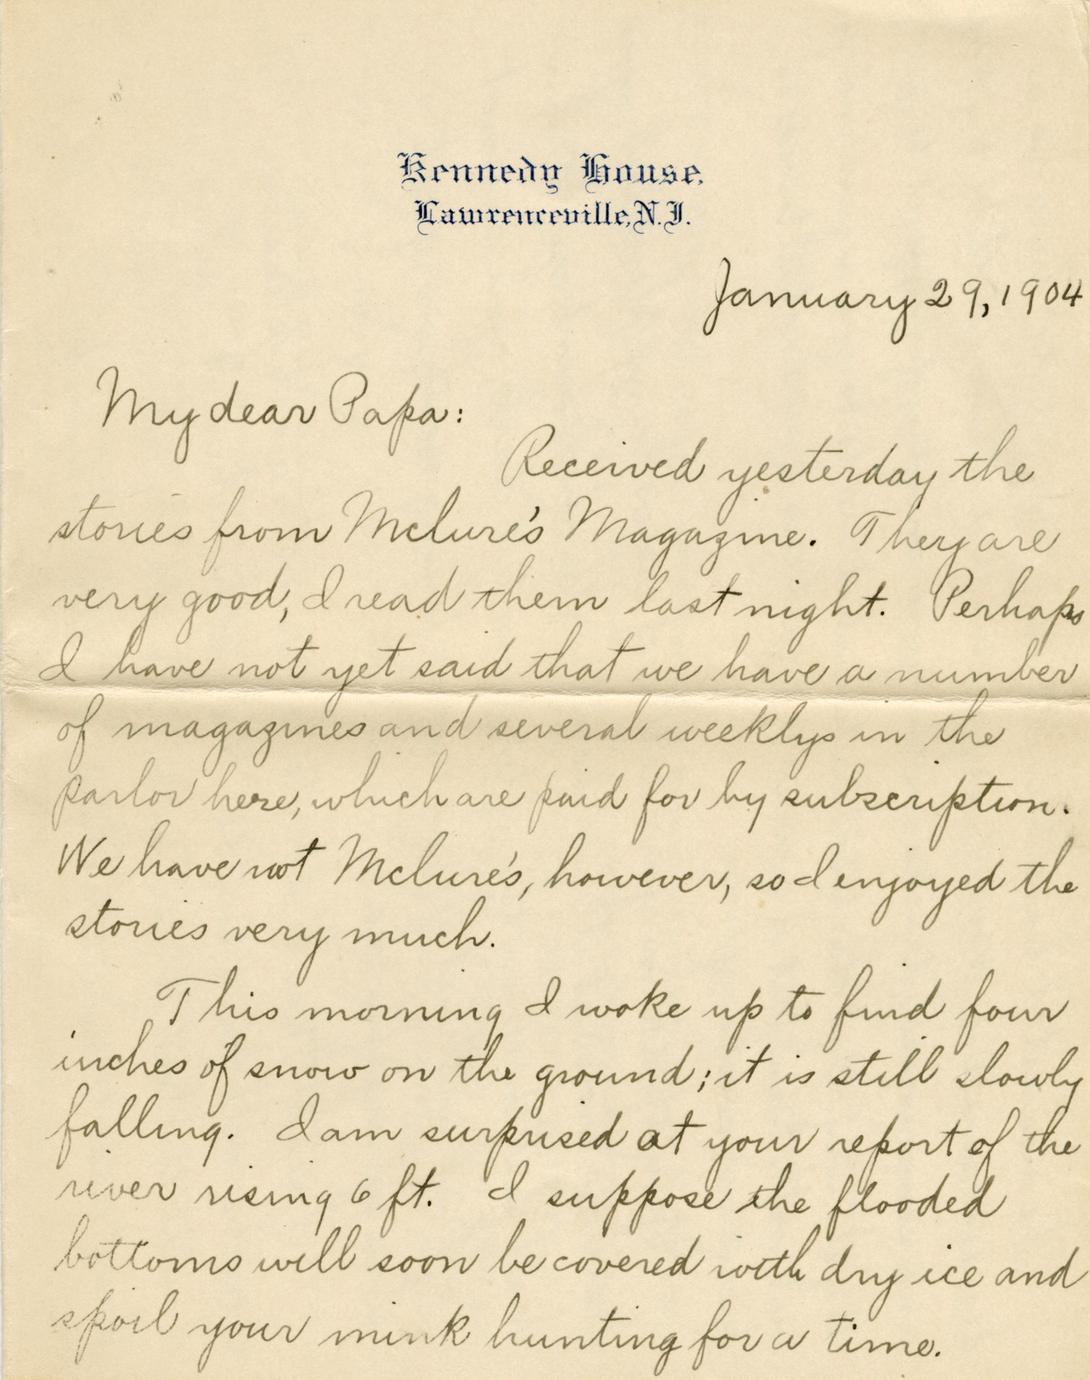 Kennedy House,
Lawrenceville, N.J.
January 29, 1904
My dear Papa:
Received yesterday the
stories from Mclure's Magazine. They are
very good, I read them last night. Perhaps
I have not yet said that we have a number
of magazines and several weeklys in the
parlor here, which are paid for by subscription.
We have not Mclure's, however, so I enjoyed the
stories very much.
This morning I woke up to find four
inches of snow on the ground; it is still slowly
falling. I am surprised at your report of the
river rising 6 ft. I suppose the flooded
bottoms will soon be covered with dry ice and
spoil your mink hunting for a time.